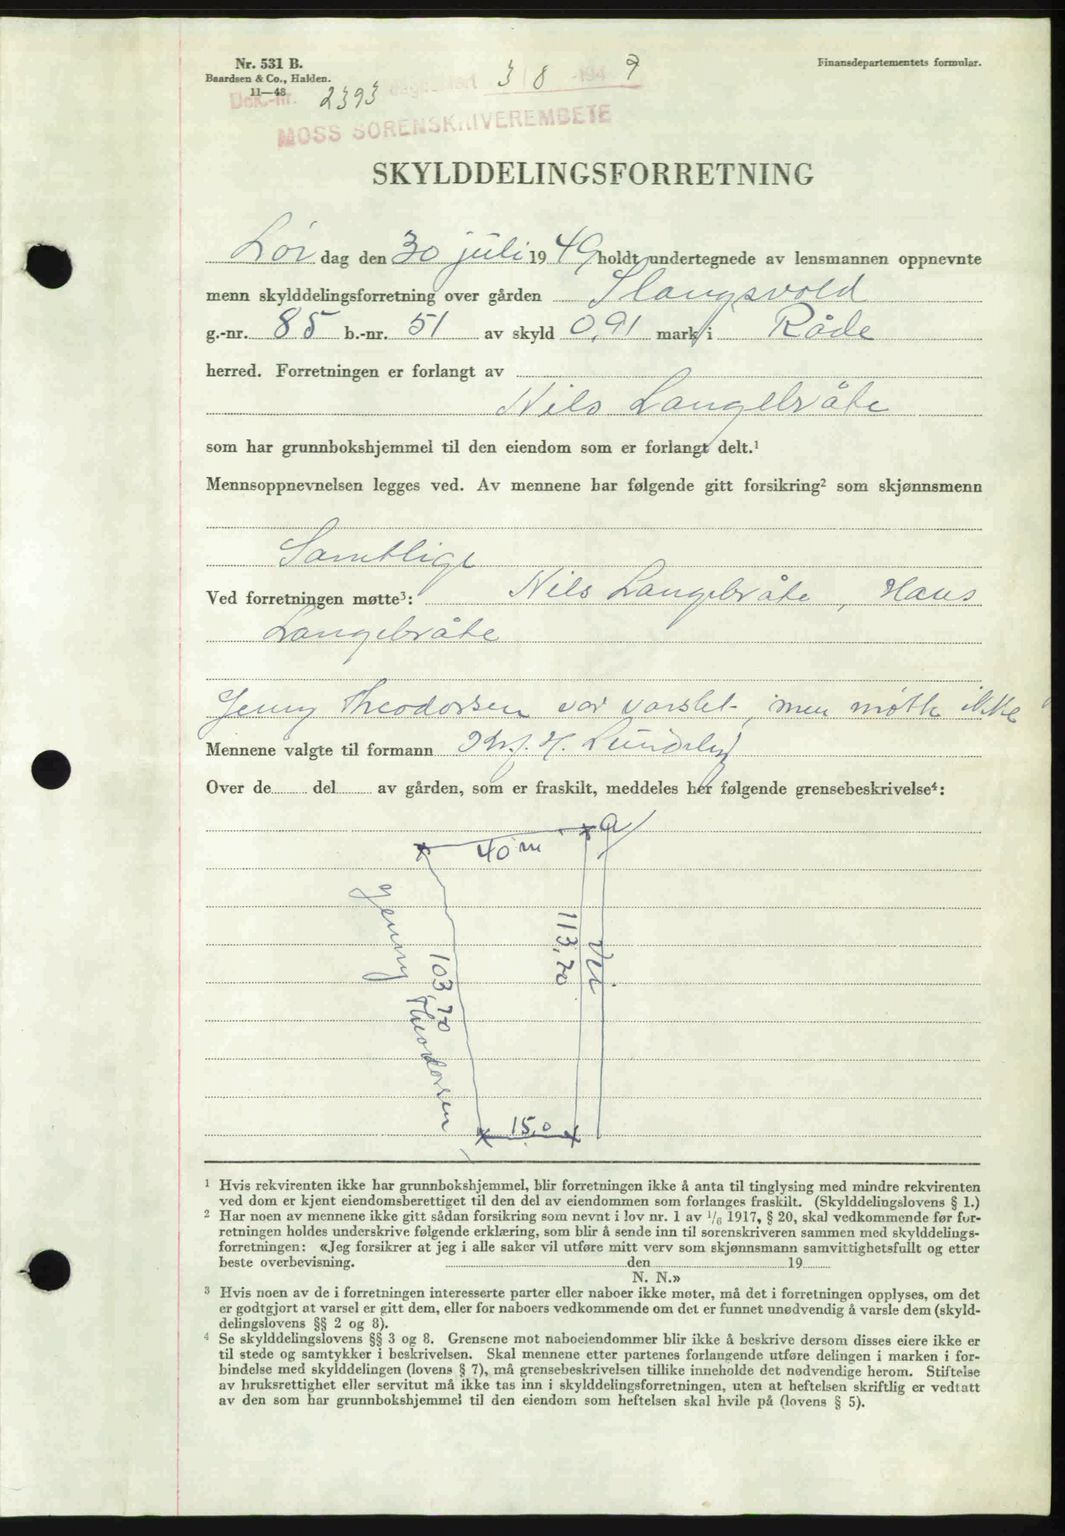 Nr. 531 B.
Baardsen & Co., Halden.
11—48
Finansdepartementets formular.
Dok.-nr. 2393 dagbokført 3/8 -1949
MOSS SORENSKRIVEREMBETE
SKYLDDELINGSFORRETNING
Lør dag den 30 juli 1949 holdt undertegnede av lensmannen oppnevnte
menn skylddelingsforretning over gården Slangsvold
g.-nr. 85 b.-nr. 51 av skyld 0,91 mark i Råde
herred. Forretningen er forlangt av
Nils Langebråte
som har grunnbokshjemmel til den eiendom som er forlangt delt.¹
Mennsoppnevnelsen legges ved. Av mennene har følgende gitt forsikring² som skjønnsmenn
Samtlige
Ved forretningen møtte³: Nils Langebråte, Hans
Langebråte
Jenny Theodorsen var varslet, men møtte ikke
Mennene valgte til formann H. Lundeby
Over de del av gården, som er fraskilt, meddeles her følgende grensebeskrivelse⁴:
a
40 m
Jenny Theodorsen
103,70
113,70
Vei
15,0
¹ Hvis rekvirenten ikke har grunnbokshjemmel, blir forretningen ikke å anta til tinglysing med mindre rekvirenten
ved dom er kjent eiendomsberettiget til den del av eiendommen som forlanges fraskilt. (Skylddelingslovens § 1.)
² Har noen av mennene ikke gitt sådan forsikring som nevnt i lov nr. 1 av 1/6 1917, § 20, skal vedkommende før for-
retningen holdes underskrive følgende erklæring, som blir å sende inn til sorenskriveren sammen med skylddelings-
forretningen: «Jeg forsikrer at jeg i alle saker vil utføre mitt verv som skjønnsmann samvittighetsfullt og etter
beste overbevisning. den 19
N. N.»
³ Hvis noen av de i forretningen interesserte parter eller naboer ikke møter, må det i forretningen opplyses, om det
er godtgjort at varsel er gitt dem, eller for naboers vedkommende om det er funnet unødvendig å varsle dem (skyld-
delingslovens §§ 2 og 8).
⁴ Se skylddelingslovens §§ 3 og 8. Grensene mot naboeiendommer blir ikke å beskrive dersom disses eiere ikke er
til stede og samtykker i beskrivelsen. Skal mennene etter partenes forlangende utføre delingen i marken i for-
bindelse med skylddelingen (lovens § 7), må grensebeskrivelsen tillike inneholde det nødvendige herom. Stiftelse
av bruksrettighet eller servitut må ikke tas inn i skylddelingsforretningen, uten at heftelsen skriftlig er vedtatt
av den som har grunnbokshjemmel til den eiendom som heftelsen skal hvile på (lovens § 5).